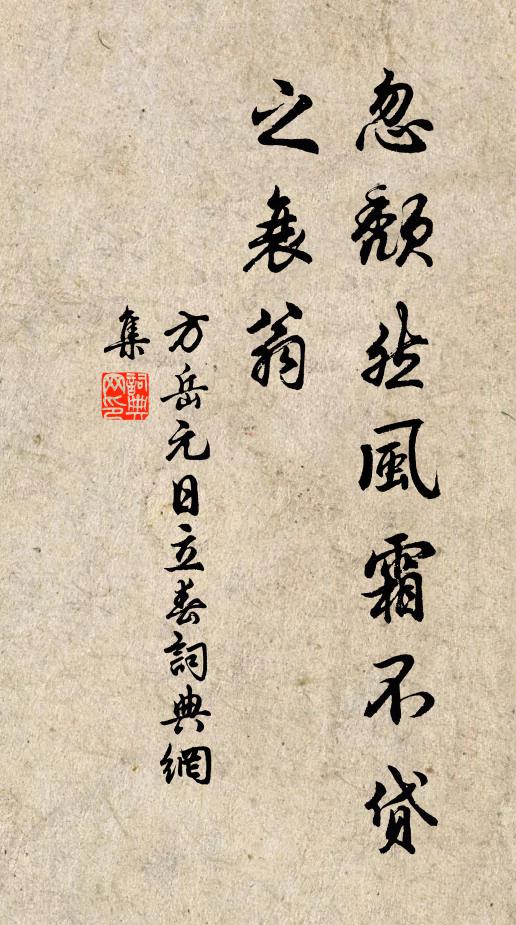 忽頹然風霜不貸
之衰翁
方岳元日立春詞典網
集
詞典网印